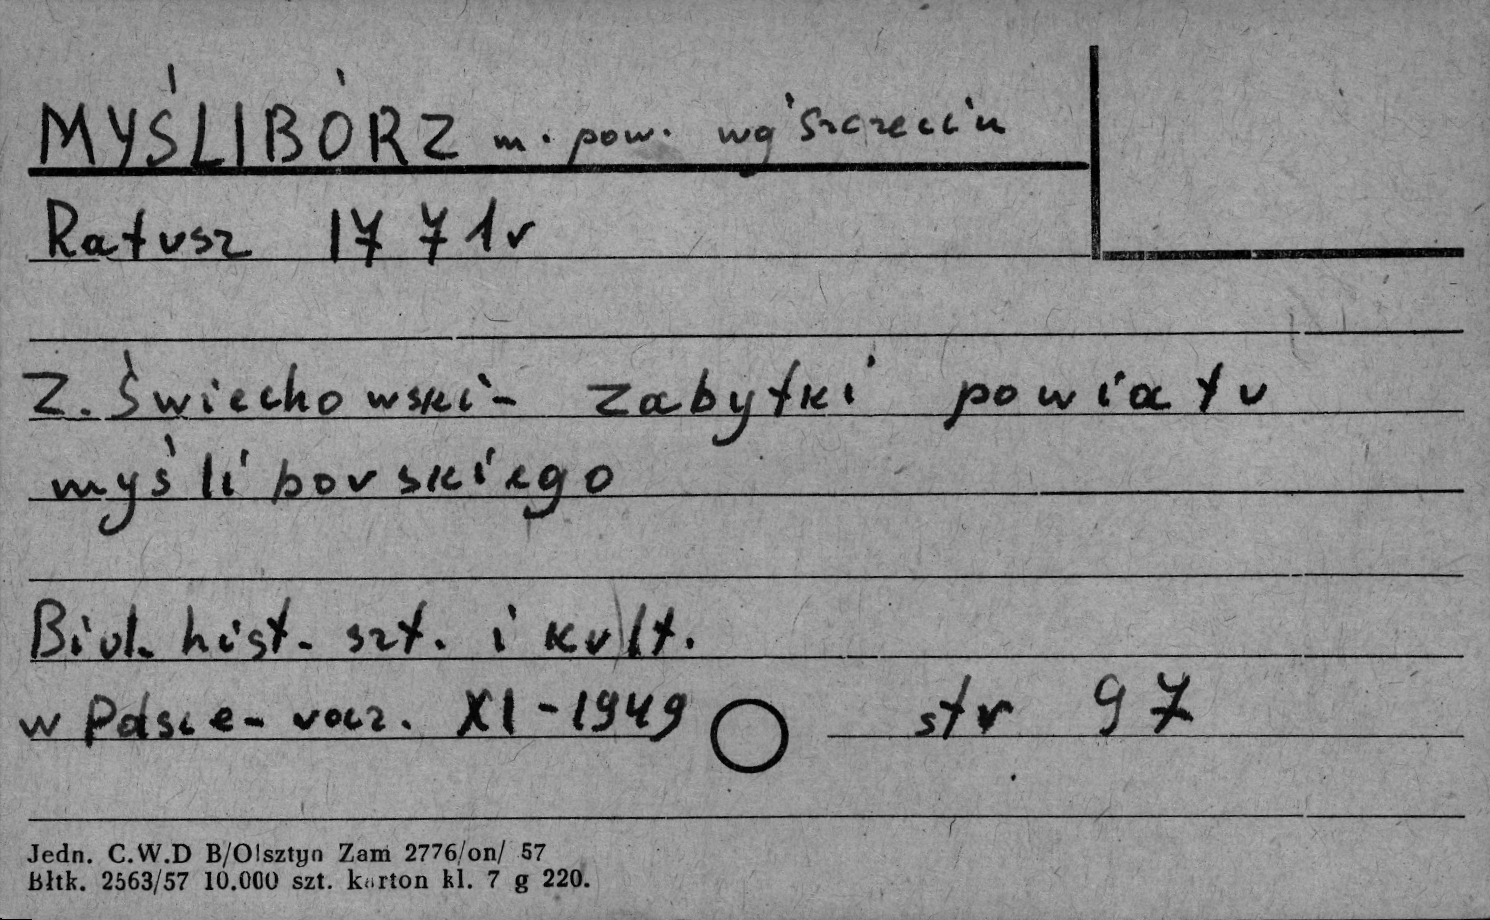 MYŚLIBÓRZ m. pow. wg Szczecin
Ratusz 1771 r
Z. Świechowski - Zabytki powiatu
myśliborskiego
Biul. hist. szt. i kult.
w Polsce - rocz. XI - 1949 str 97
Jedn. C.W.D B/Olsztyn Zam 2776/on/ 57
Błtk. 2563/57 10.000 szt. karton kl. 7 g 220.